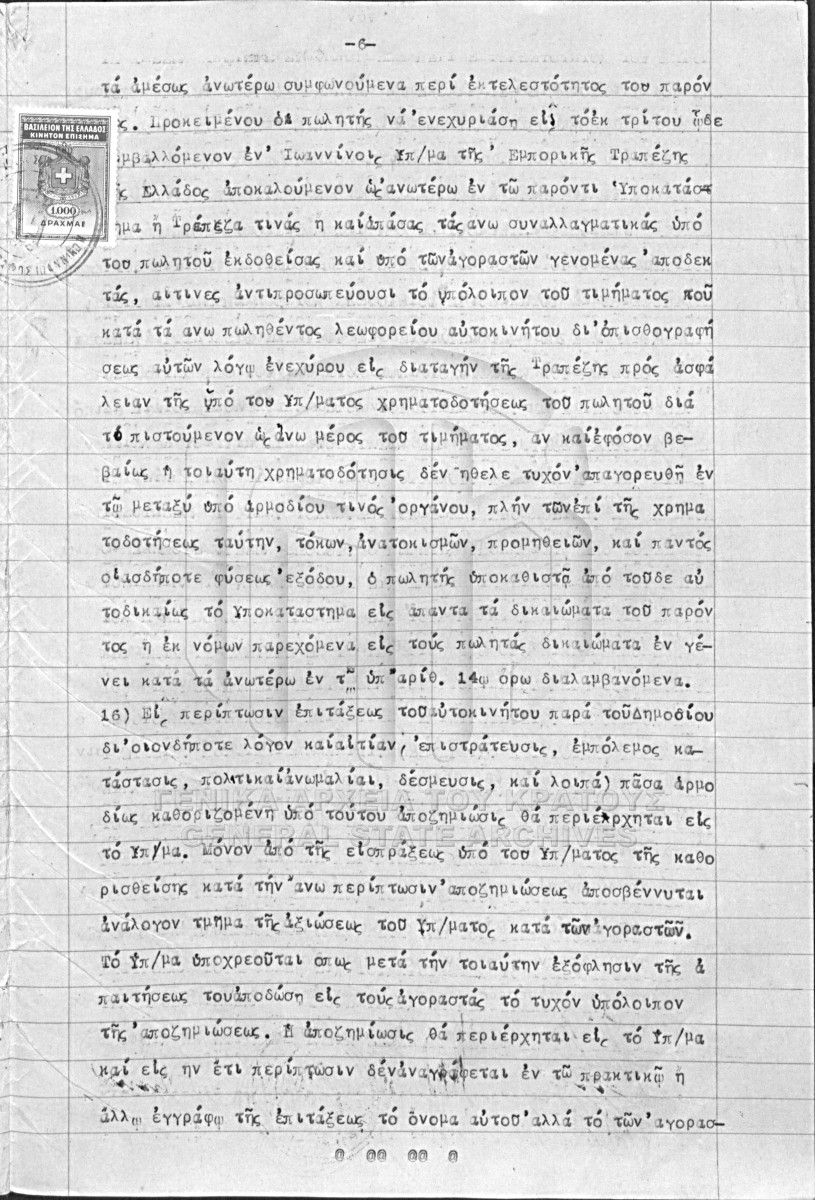 -6-
τά ἀμέσως ἀνωτέρω συμφωνούμενα περί ἐκτελεστότητος του παρόν
ΒΑΣΙΛΕΙΟΝ ΤΗΣ ΕΛΛΑΔΟΣ
ΚΙΝΗΤΟΝ ΕΠΙΣΗΜΑ
1.000
ΔΡΑΧΜΑΙ
. Προκειμένου ὁ πωλητής νά 'ενεχυριάση εἰς τόἐκ τρίτου ὧδε
υμβαλλόμενον ἐν' Ιωαννίνοις Υπ/μα τῆς 'Εμπορικῆς Τραπέζης
ς Ελλάδος ἀποκαλούμενον ὡς ἀνωτέρω ἐν τῶ παρόντι Ὑποκατάσ
ημα ἤ Τράπεζα τινάς η καίἁπάσας τάς ανω συναλλαγματικάς ὑπό
του πωλητοῦ ἐκδοθείσας καί ὑπό τῶν ἀγοραστῶν γενομένας 'αποδεκ
τάς, αἵτινες ἀντιπροσωπεύουσι τό ὑπόλοιπον τοῦ τιμήματος ποῦ
κατά τά ανω πωληθέντος λεωφορείου αὐτοκινήτου δι'ὀπισθογραφή
σεως αὐτῶν λόγῳ ἐνεχύρου εἰς διαταγήν τῆς Τραπέζης πρός ἀσφά
λειαν τῆς ὑπό του Υπ/ματος χρηματοδοτήσεως τοῦ πωλητοῦ διά
τό πιστούμενον ὡς ἄνω μέρος του τιμήματος, αν καίἐφόσον βε-
βαίως ἡ τοιαύτη χρηματοδότησις δέν ἤθελε τυχόν 'απαγορευθῆ ἐν
τῷ μεταξύ ὑπό ἁρμοδίου τινός 'οργάνου, πλήν τῶν ἐπί τῆς χρημα
τοδοτήσεως ταύτην, τόκων, ἀνατοκισμῶν, προμηθειῶν, καί παντός
οἱασδήποτε φύσεως 'εξόδου, ὁ πωλητής ὑποκαθιστᾷ ἀπό τοῦδε αὐ
τοδικαίως τό Υποκαταστημα εἰς ἅπαντα τά δικαιώματα τοῦ παρόν
τος η ἐκ νόμων παρεχόμενα εἰς τούς πωλητάς δικαιώματα ἐν γέ-
νει κατά τά ἀνωτέρω ἐν τῷ ὑπ'αριθ. 14ῳ όρω διαλαμβανόμενα.
16) Εἰς περίπτωσιν ἐπιτάξεως τοῦ αυτοκινήτου παρά τοῦ Δημοσίου
δι'οιονδήποτε λόγον καίαἰτίαν, 'επιστράτευσις, ἐμπόλεμος κα-
τάστασις, πολιτικαίἀνωμαλίαι, δέσμευσις, καί λοιπά) πᾶσα ἁρμο
δίως καθοριζομένη ὑπό τούτου ἀποζημιώσις θά περιέρχηται εἰς
ΓΕΝΙΚΑ ΑΡΧΕΙΑ ΤΟΥ ΚΡΑΤΟΥΣ
GENERAL STATE ARCHIVES
τό Υπ/μα. Μόνον ἀπό τῆς εἰσπράξεως ὑπό του Υπ/ματος τῆς καθο
ρισθείσης κατά τήν 'ανω περίπτωσιν 'αποζημιώσεως ἀποσβέννυται
ἀνάλογον τμῆμα τῆς ἀξιώσεως τοῦ Υπ/ματος κατά τῶν ἀγοραστῶν.
Τό Ὑπ/μα ὑποχρεοῦται όπως μετά τήν τοιαύτην ἐξόφλησιν τῆς ἀ
παιτήσεως του ἀποδώση εἰς τούς ἀγοραστάς τό τυχόν ὑπόλοιπον
τῆς 'αποζημιώσεως. Η ἀποζημίωσις θά περιέρχηται εἰς τό Υπ/μα
καί εἰς ην ἔτι περίπτωσιν δέν ἀναγράφεται ἐν τῶ πρακτικῷ ἤ
ἄλλῳ ἐγγράφῳ τῆς ἐπιτάξεως τό ὄνομα αὐτοῦ 'αλλά τό τῶν 'αγορασ-
@ @@ @@ @